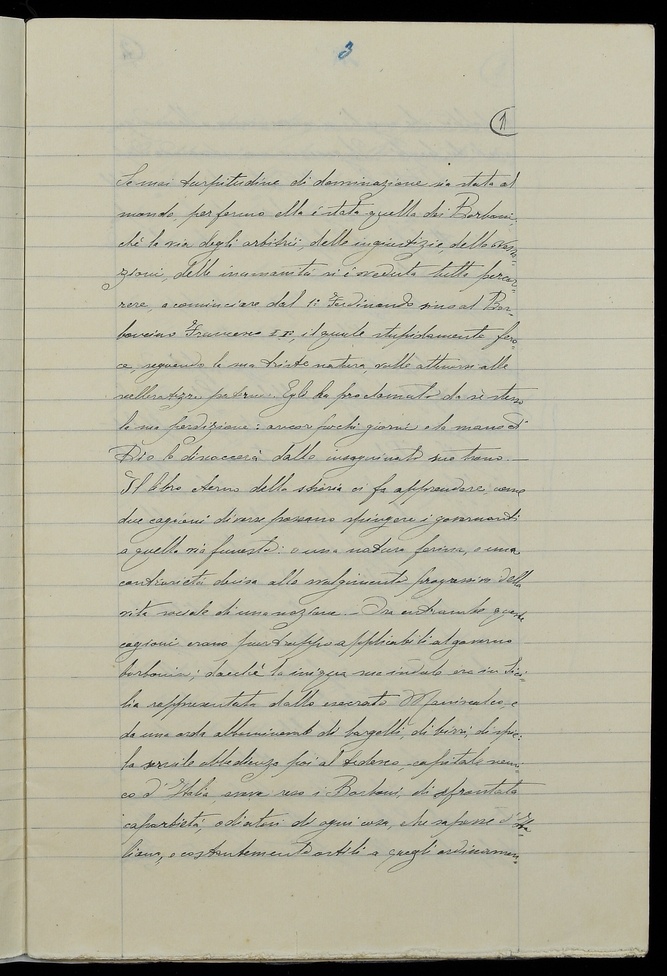 3
1
Se mai turpitudine di dominazione sia stata al
mondo, per fermo ella è stata quella dei Borboni;
chè la via degli arbitrii, delle ingiustizie, delle
zioni, delle inumanità si è veduta tutta percor-
rere, a cominciare dal 1º Ferdinando sino al Bor-
boncino Francesco IIº, il quale stupidamente fero-
ce, seguendo la sua trista natura, volle attenersi alle
scelleratezze paterne. Egli ha proclamato da sè stesso
la sua perdizione: ancor pochi giorni e la mano di
Dio lo discaccerà dallo insanguinato suo trono. —
Il libro eterno della storia ci fa apprendere, come
due cagioni diverse possano spingere i governanti
a quella via funesta: o una natura ferina, o una
contrarietà decisa allo svolgimento progressivo della
vita sociale di una nazione. — Ora entrambe queste
cagioni erano purtroppo applicabili al governo
borbonico; dacchè la iniqua sua indole era in Sici-
lia rappresentata dallo esecrato Maniscalco, e
da una orda abbominevole di bargelli, di birri, di spie:
la servile obbedienza poi al tedesco, capitale nemi-
co d'Italia, aveva reso i Borboni, di sfrontata
caparbietà, odiatori di ogni cosa, che sapesse d'Ita-
liano, e costantemente ostili a quegli ordinamen-